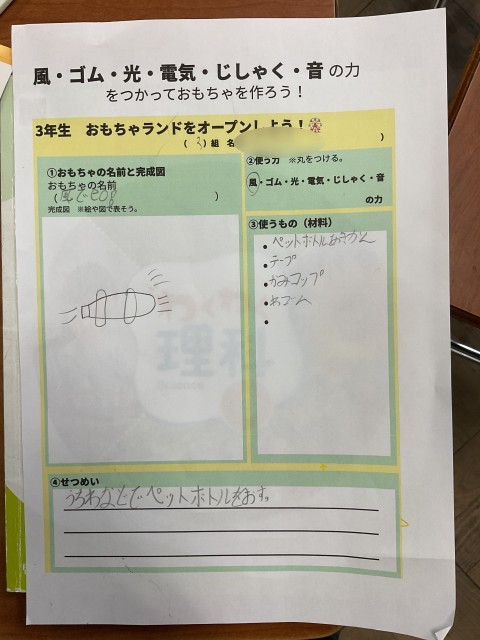 風・ゴム・光・電気・じしゃく・音 の力
をつかっておもちゃを作ろう!
3年生 おもちゃランドをオープンしよう!
( 3 )組 名 )
①おもちゃの名前と完成図
おもちゃの名前
( 風で )
完成図 ※絵や図で表そう。
わくわく
理科
②使う力 ※丸をつける。
風・ゴム・光・電気・じしゃく・音
の力
③使うもの(材料)
• ペットボトル
• テープ
• かみコップ
• わゴム
•
④せつめい
うちわなどでペットボトルをおす。